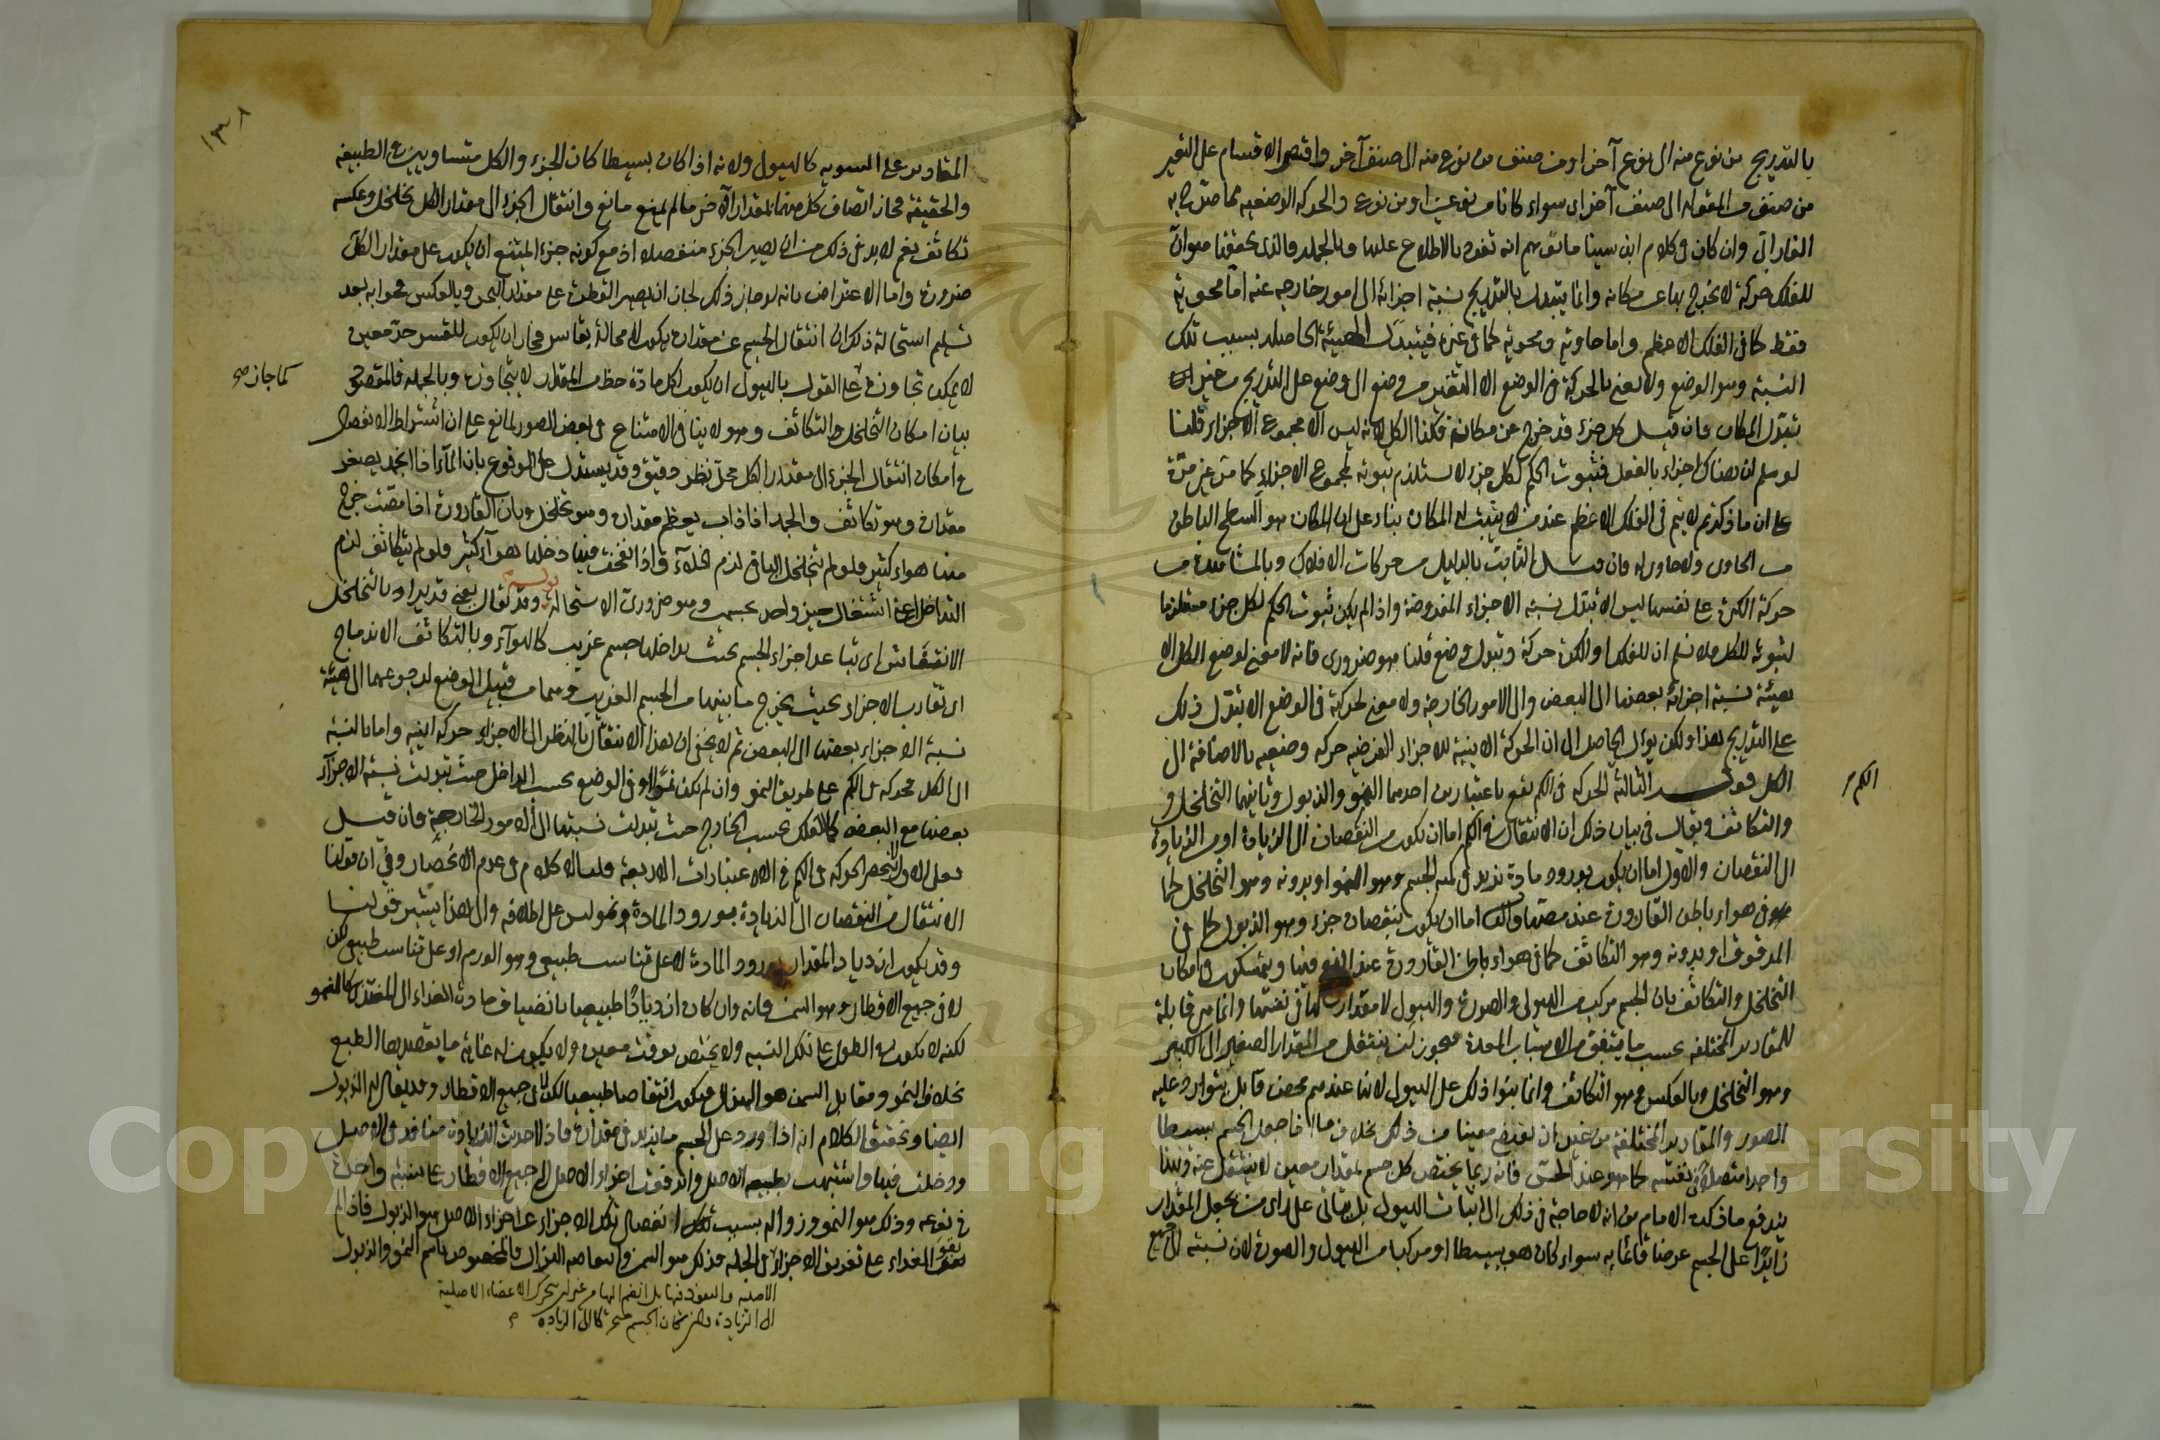 بالتدريج من نوع منه الى نوع آخر او من صنف من نوع منه الى صنف آخر واقتصر الاقسام على التغير
من صنف من المقولة الى صنف آخر اى سواء كانا من نوعين او من نوع والحركة الوضعية مما صرح به
الفارابى وان كان فى كلام ابن سينا ما يوهم انه تفرد بالاطلاع عليها وبالجملة فالذى تحققنا هو ان
للفلك حركة لا يخرج بها عن مكانه وانما يتبدل بالتدريج نسبة اجزائه الى امور خارجة عنه اما محوية
فقط كما فى الفلك الاعظم واما حاوية ومحوية كما فى غيره فيتبدل الهيئة الحاصلة بسبب تلك
النسبة وهو الوضع ولا نعنى بالحركة فى الوضع الا التغير من وضع الى وضع على التدريج من غير
تبدل المكان فان قيل كل جزء قد خرج عن مكانه فكذا الكل لانه ليس الا مجموع الاجزاء قلنا
لو سلم ان هناك اجزاء بالفعل فثبوت الحكم لكل جزء لا يستلزم ثبوته لمجموع الاجزاء كما مر غير مرة
على ان ما ذكرتم لا يتم فى الفلك الاعظم عند من لا يثبت له المكان بناء على ان المكان هو السطح الباطن
من الحاوى ولا حاوى له فان قيل الثابت بالدليل من حركات الافلاك وبالمشاهدة من
حركة الكرة على نفسها ليس الا تبدل نسبة الاجزاء المفروضة واذا لم يكن ثبوت الحكم لكل جزء مستلزما
لثبوته للكل فلا نسلم ان للفلك او الكرة حركة وتبدل وضع قلنا هو ضرورى فانه لا معنى لوضع الكل الا
هيئة نسبة اجزائه بعضها الى البعض والى الامور الخارجة ولا معنى لحركته فى الوضع الا تبدل ذلك
على التدريج هذا ولكن يؤل الحاصل الى ان الحركة الاينية للاجزاء الفرضية حركة وضعية بالاضافة الى
الكل قوله الثالثة الحركة فى الكم تقع باعتبارين احدهما النمو والذبول وثانيهما التخلخل و
الكم م
والتكاثف ويقال فى بيان ذلك ان الانتقال فى الكم اما ان يكون من النقصان الى الزيادة او من الزيادة
الى النقصان والاول اما ان يكون بورود مادة تزيد فى كمية الجسم وهو النمو او بدونه وهو التخلخل كما
فى هواء باطن القارورة عند مصها والثانى اما ان يكون بنقصان جزء وهو الذبول كما فى
المدقوق او بدونه وهو التكاثف كما فى هواء باطن القارورة عند النفخ فيها ويتمسك فى امكان
التخلخل والتكاثف بان الجسم مركب من الهيولى والصورة والهيولى لا مقدار لها فى نفسها وانما هى قابلة
للمقادير المختلفة بحسب ما يتفق من الاسباب المعدة فيجوز ان ينتقل من المقدار الصغير الى الكبير
وهو التخلخل وبالعكس وهو التكاثف وانما بنوا ذلك على الهيولى لانها عندهم محض قابل يتوارد عليه
الصور والمقادير المختلفة من غير ان يقتضى معينا من ذلك بخلاف ما اذا جعل الجسم بسيطا
واحدا متصلا فى نفسه كما هو عند الحس فانه ربما يختص كل جسم بمقدار معين لا ينتقل عنه وبهذا
يندفع ما ذكره الامام من انه لا حاجة فى ذلك الى اثبات الهيولى بل يتأتى على راى من يجعل المقدار
زايدا على الجسم عرضا قائما به سواء كان هو بسيطا او مركبا من الهيولى والصورة لان نسبته الى جميع
١٣٨
المقادير على السوية كالهيولى ولانه اذا كان بسيطا كان الجزء والكل متساويين فى الطبيعة
والحقيقة فجاز اتصاف كل منهما بمقدار الآخر ما لم يمنع مانع وانتقال الجزء الى مقدار الكل تخلخل وعكسه
تكاثف نعم لا بد فى ذلك من ان يصير الجزء منفصلا اذ مع كونه جزءا يمتنع ان يكون على مقدار الكل
ضرورة واما الاعتراض بانه لو جاز ذلك لجاز ان يصير القطرة على مقدار البحر وبالعكس فجوابه بعد
تسليم استحالة ذلك ان انتقال الجسم عن مقداره يكون لا محالة بقاسر فجاز ان يكون للقسر حد معين
لا يمكن تجاوزه على القول بالهيولى ان يكون لكل مادة حظ من المقدار لا يتجاوزه وبالجملة فالمقصود
كما جاز صح
بيان امكان التخلخل والتكاثف وهو لا ينافى الامتناع فى بعض الصور لمانع على ان اشتراط الانفصال
فى امكان انتقال الجزء الى مقدار الكل محل نظر دقيق وقد يستدل على الوقوع بان الماء اذا انجمد يصغر
مقداره وهو تكاثف والجمد اذا ذاب يعظم مقداره وهو تخلخل وبان القارورة اذا مصت خرج
منها هواء كثير فلو لم يتخلخل الباقى لزم الخلاء واذا نفخت فيها دخلها هواء كثير فلو لم يتكاثف لزم
التداخل اعنى اشتغال حيز واحد بجسمين وهو ضرورى الاستحالة قوله وقد يقال يعنى قد يراد بالتخلخل
الانتفاش اى تباعد اجزاء الجسم بحيث يداخلها جسم غريب كالهواء وبالتكاثف الاندماج
اى تقارب الاجزاء بحيث يخرج ما بينها من الجسم الغريب وهما من قبيل الوضع لرجوعهما الى هيئة
نسبة الاجزاء بعضها الى البعض ثم لا يخفى ان هذا الانتقال بالنظر الى الاجزاء حركة اينية واما بالنسبة
الى الكل فحركة فى الكم على طريق النمو وان لم يكن نموا او فى الوضع بحسب الداخل حيث تبدلت نسبة الاجزاء
بعضها مع البعض كما للفلك بحسب الخارج حيث تبدلت نسبتها الى الامور الخارجة فان قيل
فعلى هذا لا تنحصر الحركة فى الكم فى الاعتبارات الاربعة قلنا لا كلام فى عدم الانحصار وفى ان قولنا
الانتقال من النقصان الى الزيادة بورود المادة نمو ليس على اطلاقه والى هذا يشير قولنا
وقد يكون ازدياد المقدار بورود المادة لا على تناسب طبيعى وهو الورم او على تناسب طبيعى لكن
لا فى جميع الاقطار وهو السمن فانه وان كان ازديادا طبيعيا بانضياف مادة الغذاء الى المغتذى كالنمو
لكنه لا يكون فى الطول على تلك النسبة ولا يختص بوقت معين ولا يكون له غاية ما يقصدها الطبع
بخلاف النمو ومقابل السمن هو الهزال فيكون انتقاصا طبيعيا لكن لا فى جميع الاقطار وقد يقال له الذبول
ايضا وتحقيق الكلام انه اذا ورد على الجسم ما يزيد فى مقداره فاذا احدثت الزيادة منافذ فى الاصل
ودخلت فيها واشتبهت بطبيعة الاصل واندفعت اجزاء الاصل الى جميع الاقطار على نسبة واحدة
فى نوعه وذلك هو النمو وزواله بسبب انفصال تلك الاجزاء عن اجزاء الاصل هو الذبول فاذا لم
يقو الغذاء على تفريق الاجزاء فى الجملة فذلك هو السمن وانتقاصه الهزال والمخصوص باسم النمو والذبول
الاصلية والنفوذ فيها بل انضم اليها من غير ان يتحرك الاعضاء الاصلية
الى الزيادة وان كان الجسم متحركا الى الزيادة م